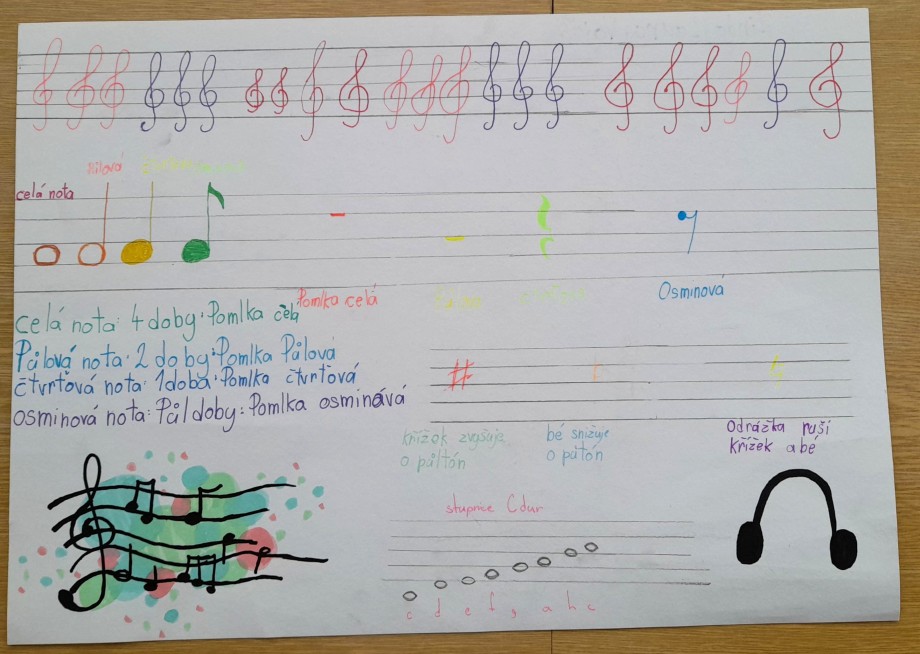 půlová
celá nota
Pomlka celá
Osminová
celá nota: 4 doby: Pomlka celá
Půlová nota: 2 doby: Pomlka Půlová
čtvrťová nota: 1doba: Pomlka čtvrťová
osminová nota: Půl doby: Pomlka osminává
křížek zvyšuje
o půltón
bé snižuje
o pátón
Odrážka ruší
křížek a bé
stupnice C dur
c d e f g a h c